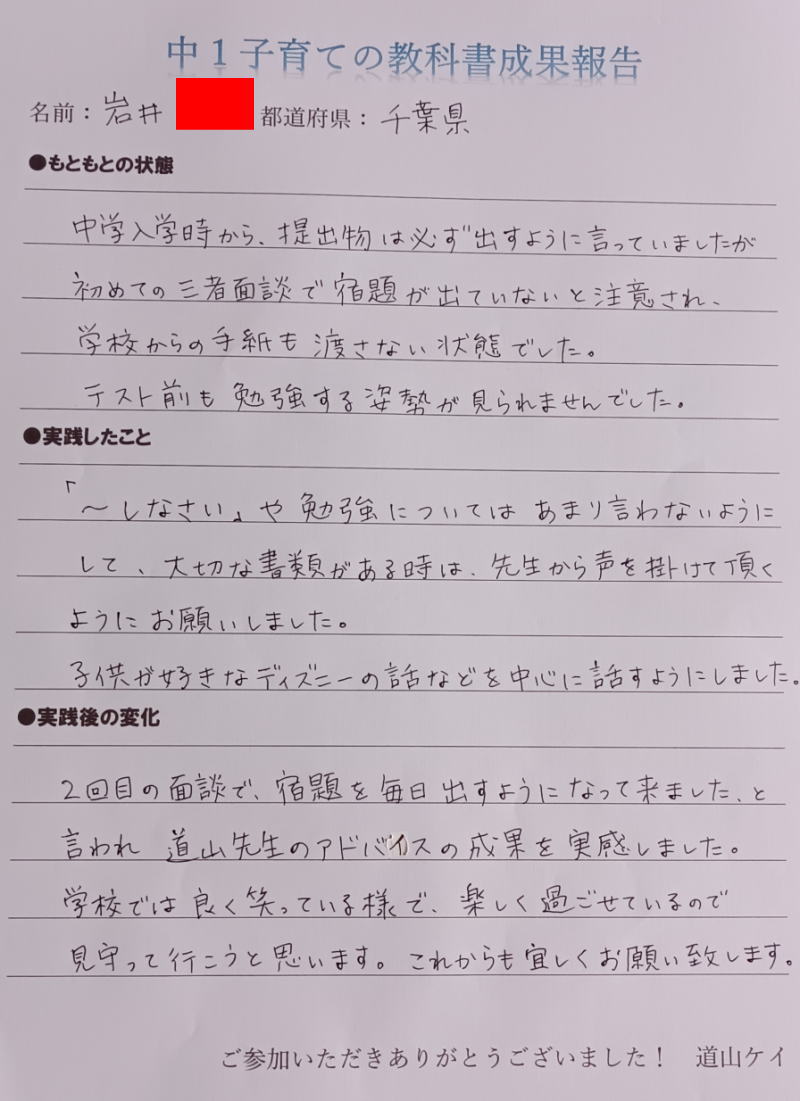 中１子育ての教科書成果報告
名前：岩井 都道府県：千葉県
●もともとの状態
中学入学時から、提出物は必ず出すように言っていましたが
初めての三者面談で宿題が出ていないと注意され、
学校からの手紙も渡さない状態でした。
テスト前も勉強する姿勢が見られませんでした。
●実践したこと
「～しなさい」や勉強についてはあまり言わないように
して、大切な書類がある時は、先生から声を掛けて頂く
ようにお願いしました。
子供が好きなディズニーの話などを中心に話すようにしました。
●実践後の変化
2回目の面談で、宿題を毎日出すようになって来ました、と
言われ道山先生のアドバイスの成果を実感しました。
学校では良く笑っている様で、楽しく過ごせているので
見守って行こうと思います。これからも宜しくお願い致します。
ご参加いただきありがとうございました！　道山ケイ